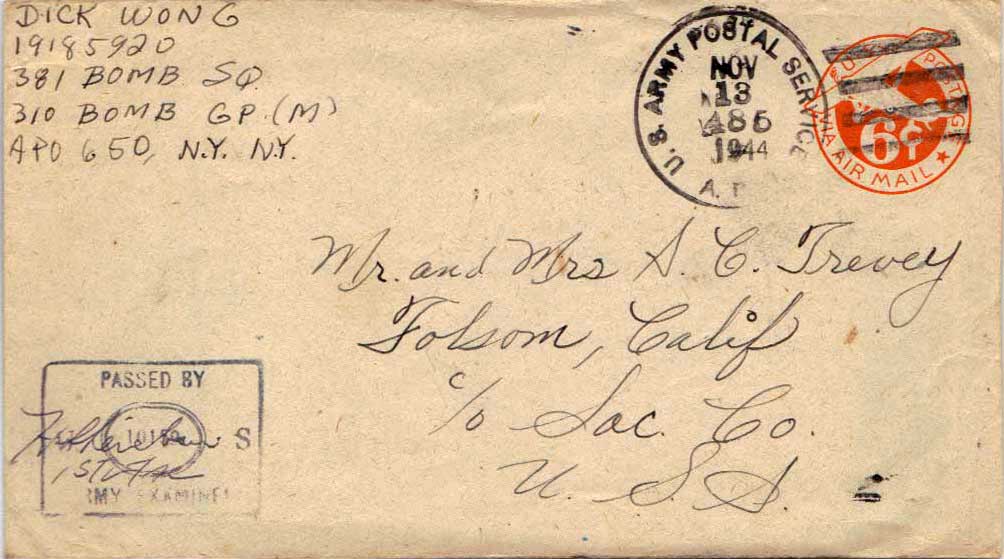 DICK WONG
19185920
381 BOMB SQ.
310 BOMB GP. (M)
APO 650, N.Y. N.Y.
U. S. ARMY POSTAL SERVICE
NOV
13
1944
A. P
POSTAGE
6¢
VIA AIR MAIL
Mr. and Mrs S. C. Trevey
Folsom, Calif
c/o Sac. Co.
U. S. A
PASSED BY
S
ARMY EXAMINER